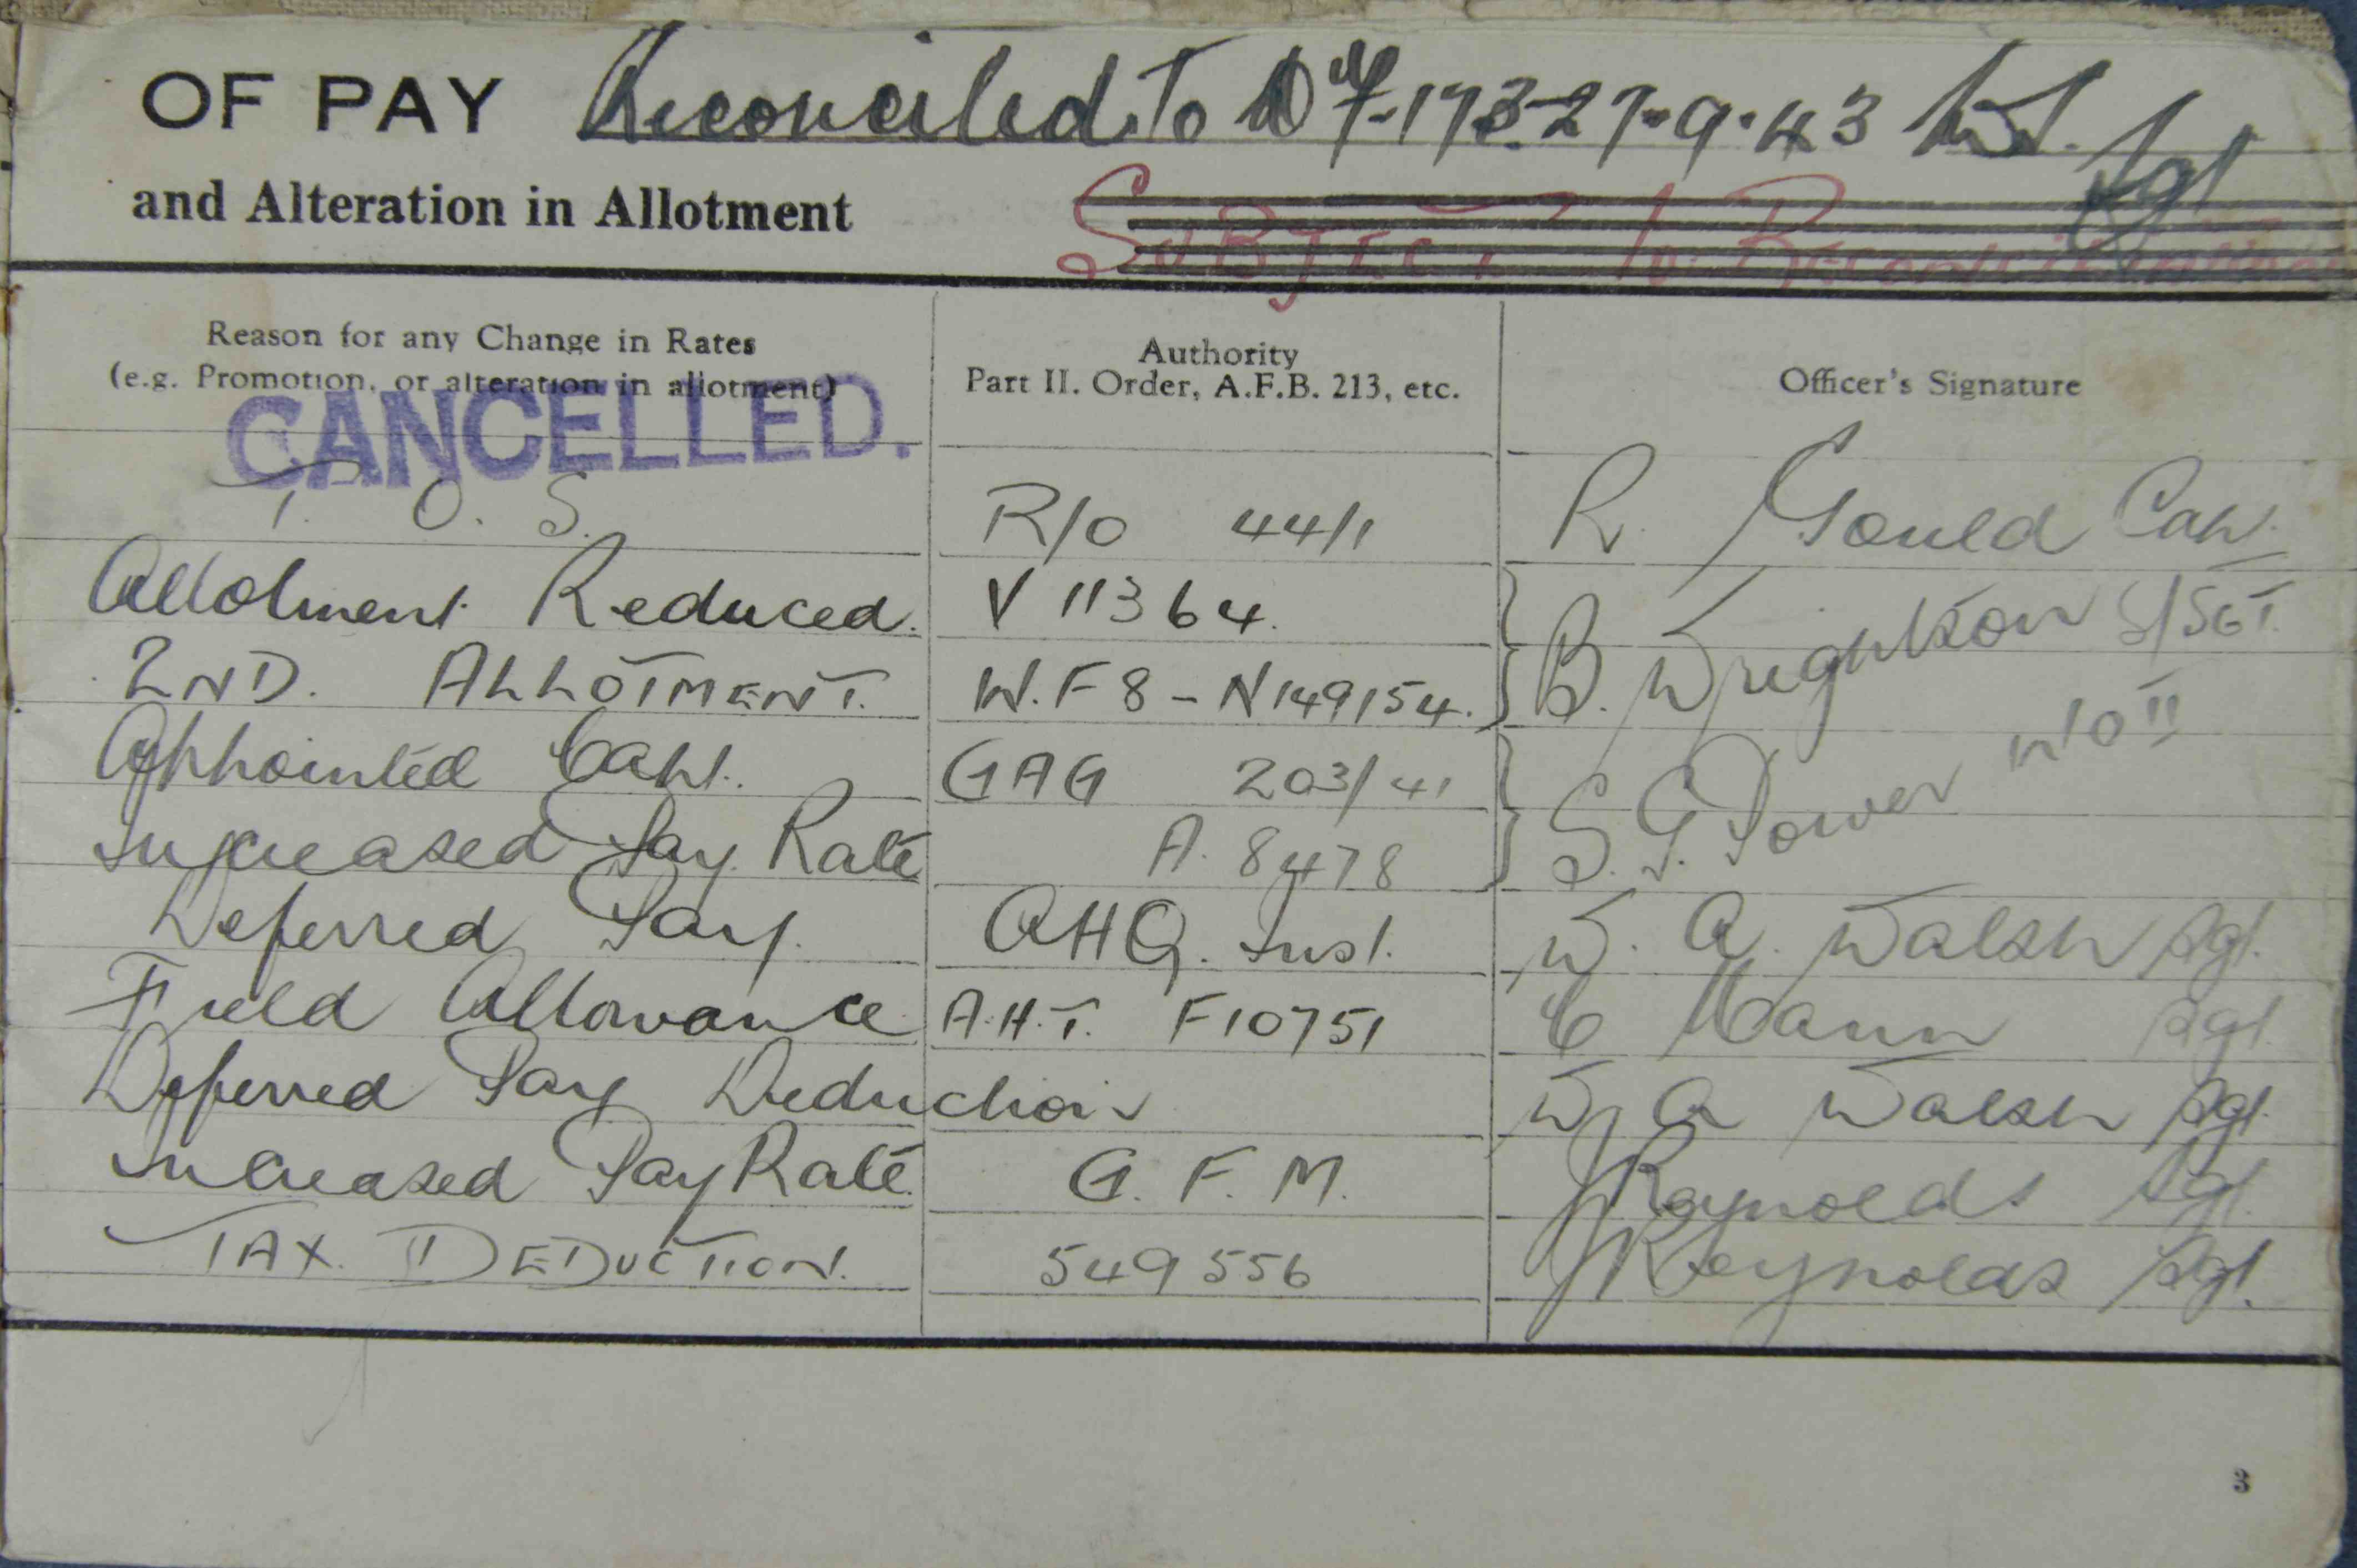 OF PAY Reconciled To 173-27-9-43 Sgt
and Alteration in Allotment SUBJECT To Reconciliation
Reason for any Change in Rates
(e.g. Promotion, or alteration in allotment)
Authority
Part II. Order, A.F.B. 213, etc.
Officer's Signature
CANCELLED.
T. O. S. R/O 44/1 R. Gould Capt.
Allotment Reduced. V 11364. B. Wrightson S/SGT.
2ND. ALLOTMENT. W.F 8 - N149154.
Appointed Capt. GAG 203/41 S. G. Power W/O II
Increased Pay Rate A. 8478
Deferred Pay. AHQ. Inst. W. A. Walsh Sgt.
Field Allowance A.H.T. F10751 C Mann Sgt.
Deferred Pay Deduction W A Walsh Sgt.
Increased Pay Rate. G. F. M. J Reynolds Sgt.
TAX. DEDUCTION. 549556 J Reynolds Sgt.
3